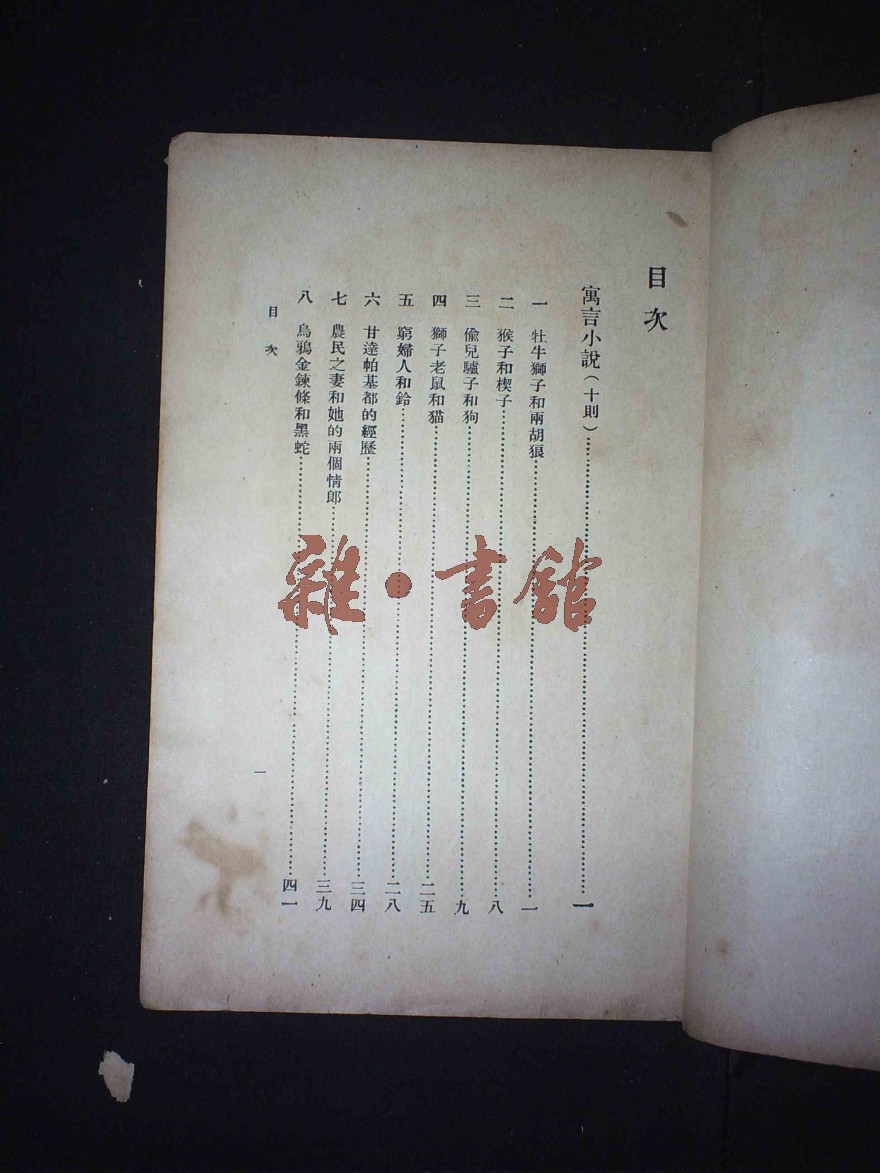 目次
寓言小說（十則）……一
一 牡牛獅子和兩胡狼……一
二 猴子和楔子……八
三 偸兒驢子和狗……九
四 獅子老鼠和猫……二五
五 窮婦人和鈴……二八
六 甘達帕基都的經歷……三四
七 農民之妻和她的兩個情郎……三九
八 烏鴉金鍊條和黑蛇……四一
目次
一
雜·書館